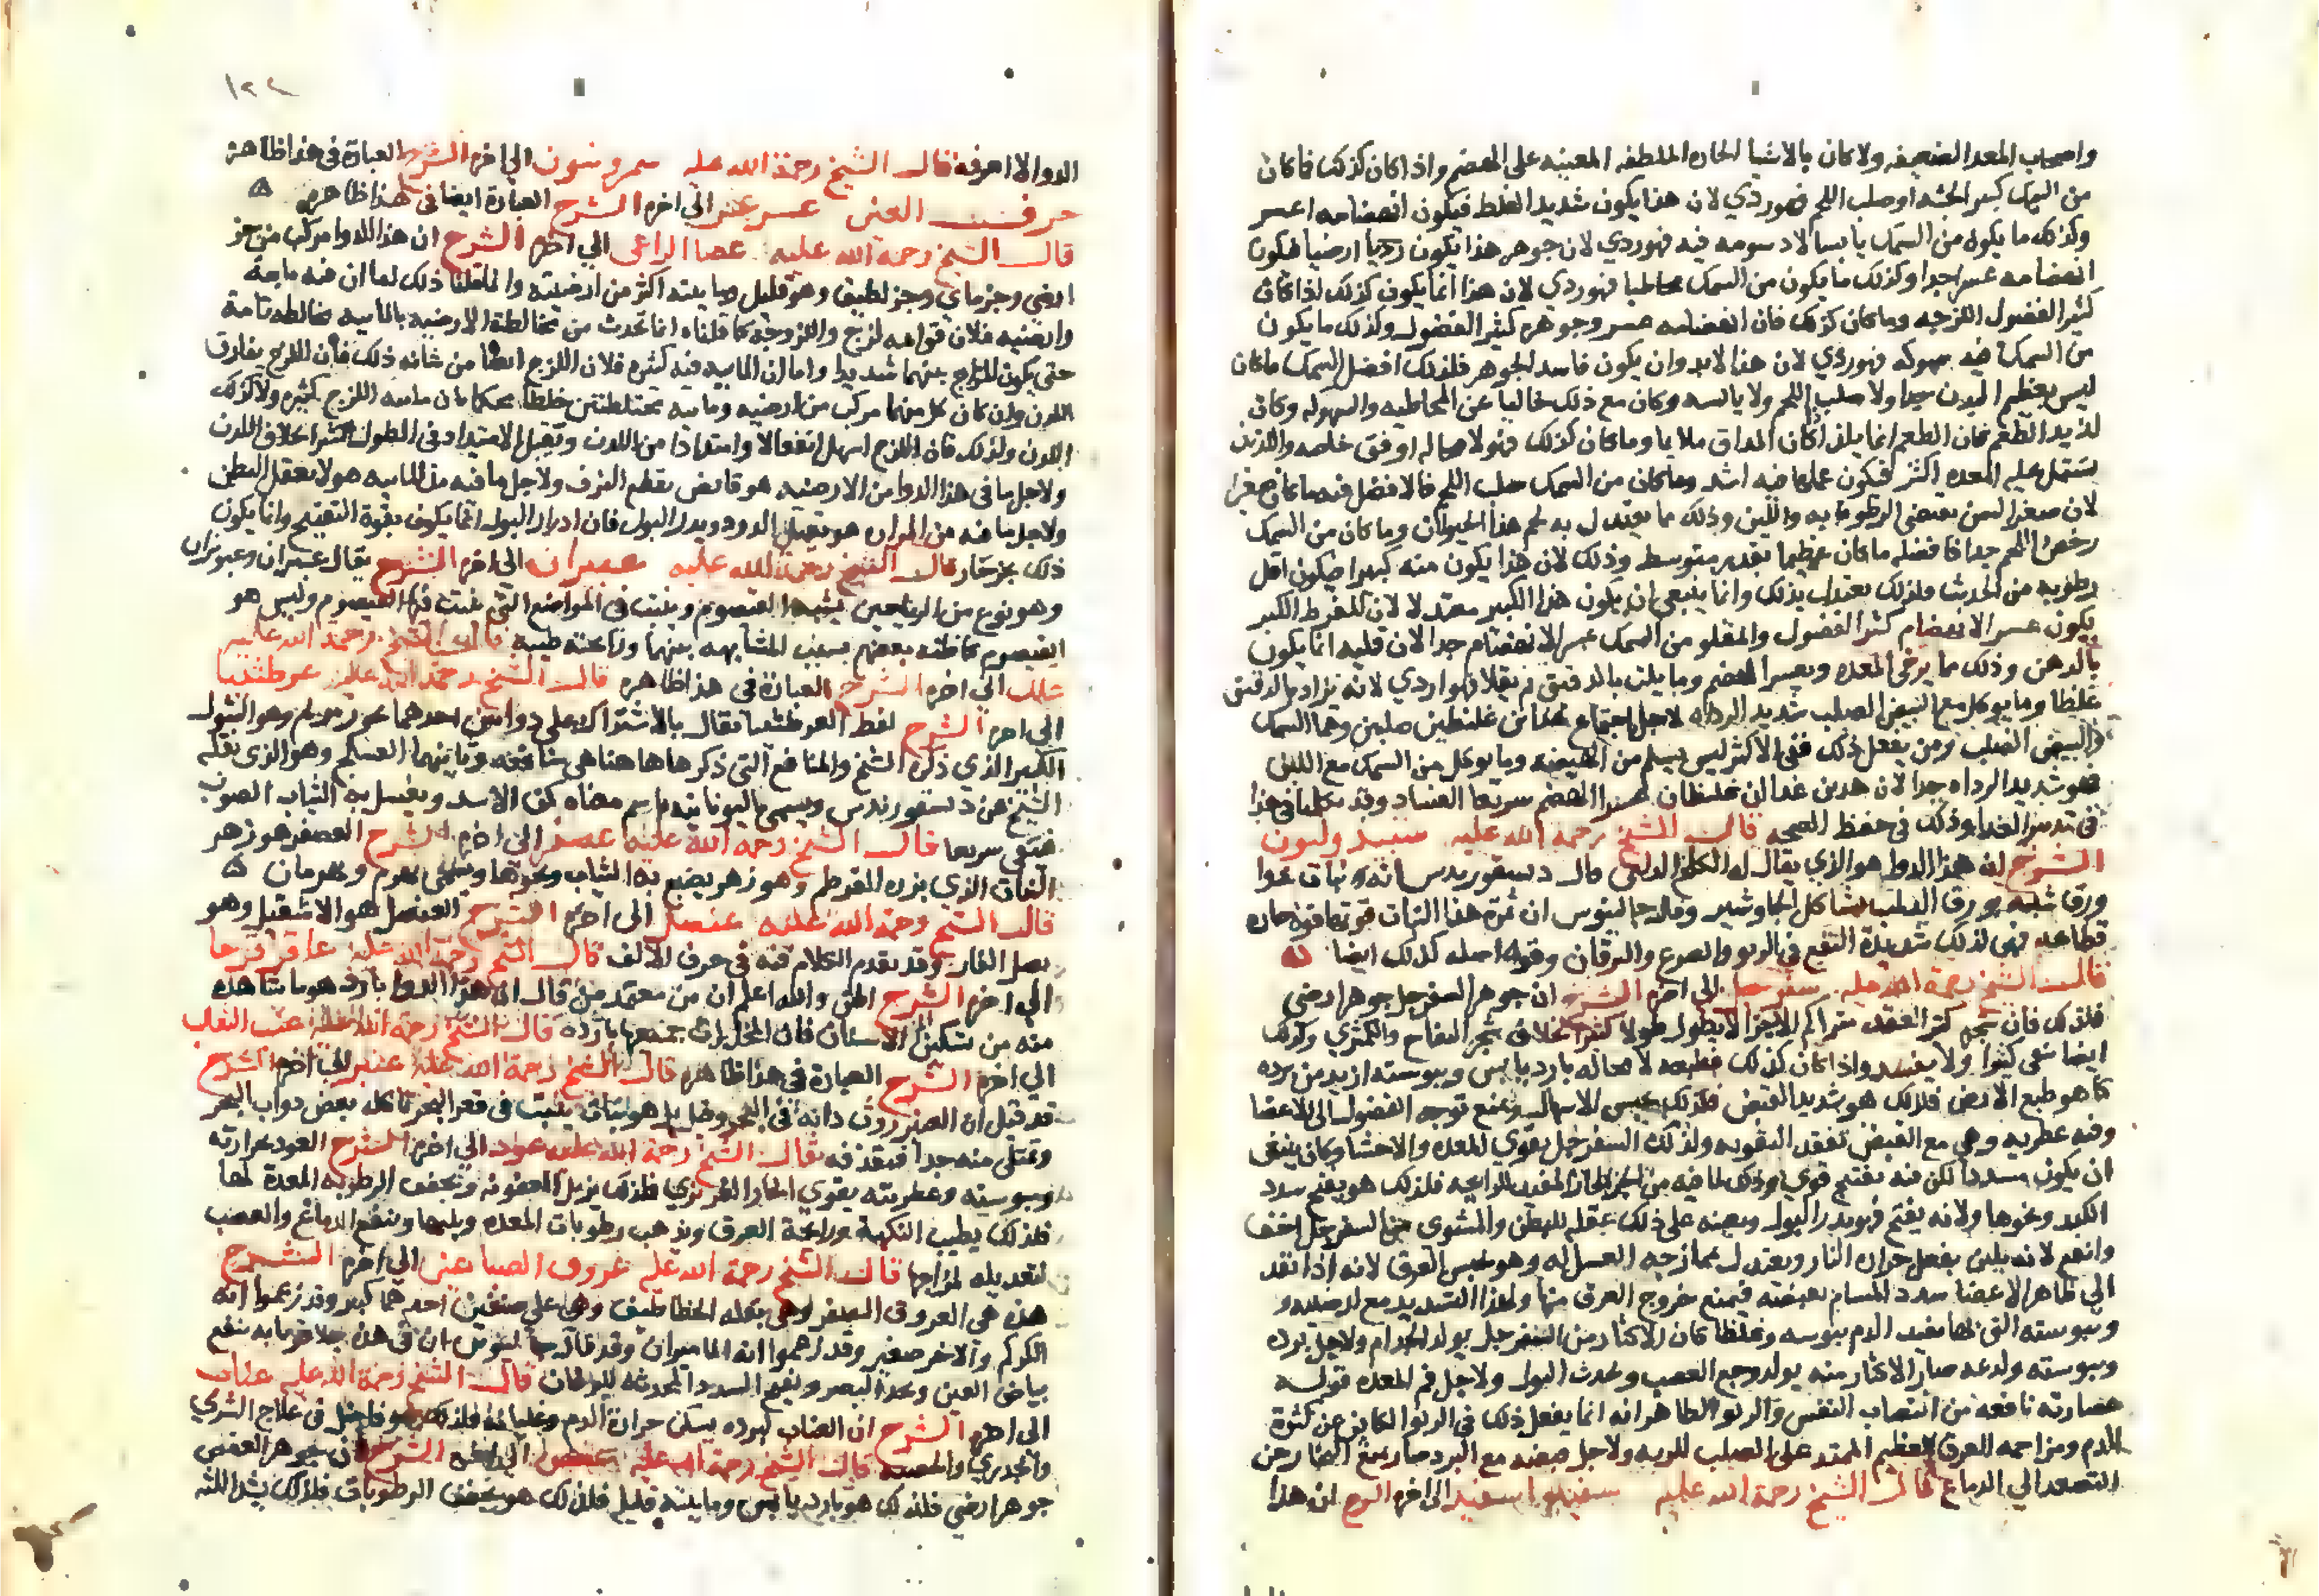 واصحاب المعد الضعيفه ولا كان بالاشيا الحاره الملطفه المعينه على الهضم واذا كان كذلك فما كان
من السمك كبير الجثه او صلب اللحم فهو ردي لان هذا يكون شديد الغلظ فيكون انهضامه اعسر
وكذلك ما يكون من السمك يابسا لا دسومه فيه فهو ردي لان جوهر هذا يكون رديا ارضيا فيكون
انهضامه عسرا جدا وكذلك ما يكون من السمك مخاطيا فهو ردي لان هذا انما يكون كذلك اذا كان
كثير الفضول اللزجه وما كان كذلك فان انهضامه عسر وجوهره كثير الفضول وكذلك ما يكون
من السمك فيه سهوكه فهو ردي لان هذا لابد وان يكون فاسد الجوهر فلذلك افضل السمك ما كان
ليس بعظيم البدن جدا ولا صلب اللحم ولا يابسه وكان مع ذلك خاليا عن المخاطيه والسهوكه وكان
لذيذ الطعم فان الطعم انما يلذ اذا كان المذاق ملايما وما كان كذلك فهو لا محاله اوفق خاصه واللذيذ
تشتمل عليه المعده اكثر فيكون عملها فيه اشد وما كان من السمك صلب اللحم فالافضل فيه ما كان صغيرا
لان صغر السن يقتضي الرطوبه واللين وذلك مما يعتدل به لحم هذا الحيوان وما كان من السمك
رخص اللحم جدا فافضله ما كان عظيما بقدر متوسط وذلك لان هذا يكون منه كبيرا فيكون اقل
رطوبه من الحدث فلذلك يعتدل بذلك وانما ينبغي ان يكون هذا الكبير معتدلا لان المفرط الكبر
يكون عسر الانهضام كثير الفضول والمقلو من السمك عسر الانهضام جدا لان قليه انما يكون
بالدهن وذلك مما يرخي المعده ويعسر الهضم وما يلت بالدقيق ثم يقلا فهو اردي لانه يزداد بالدقيق
غلظا وما يوكل مع البيض الصلب شديد الرداه لاجل اجتماع غذاين غليظين صلبين وهما السمك
والبيض الصلب ومن يفعل ذلك ففي الاكثر ليس يسلم من الهيضه وما يوكل من السمك مع اللبن
فهو شديد الرداه جدا لان هذين غذاان غليظان عسرا الهضم سريعا الفساد وقد تكلمنا في هذا
في تدبير الغذا وذلك في حفظ الصحه قال الشيخ رحمة الله عليه
الشرح ان هذا الدوا هو الذي يقال له الكلخ قال ديسقوريدس انه نبات له
ورق شبيه بورق وقال جالينوس ان ثمرة هذا النبات قوتها قوة حاره
قطاعه فهي لذلك شديدة النفع في الربو والصرع واليرقان وقوة اصله كذلك ايضا
قال الشيخ رحمة الله عليه سفرجل الى اخره الشرح ان جوهر السفرجل جوهر ارضي
فلذلك فان شجره كثير العقد متراكم الاجزا لا يطول طولا كثيرا بخلاف شجر التفاح والكمثري وكذلك
ايضا يبقى كثيرا ولا يفسد واذا كان كذلك فطبعه لا محاله بارد يابس ويبوسته ازيد من برده
كما هو طبع الارض فلذلك هو شديد القبض فلذلك يحبس الاسهال ويمنع توجه الفضول الى الاعضا
وفيه عطريه وهي مع القبض تفيد التقويه ولذلك السفرجل يقوي المعده والاحشا وكان ينبغي
ان يكون مسددا لكن فيه تفتيح قوي وذلك لما فيه من الجزء الحار المفيد للرايحه فلذلك هو يفتح سدد
الكبد ونحوها ولانه يفتح فهو يدر البول ويعينه على ذلك عقله للبطن والمشوي من السفرجل اخف
وانفع لانه يلين بفعل حرارة النار ويعتدل بممازجة العسل له وهو يحبس العرق لانه اذا نفذ
الى ظاهر الاعضا سدد المسام بقبضه فيمنع خروج العرق منها ولهذا التسديد مع ارضيته
ويبوسته التي بها يفيد الدم يبوسه وغلظا كان الاكثار من السفرجل يولد الجذام ولاجل برده
ويبوسته ولذعه صار الاكثار منه يولد وجع العصب ويحدث البول ولاجل فم المعده قوله
عصارته نافعه من انتصاب النفس والربو الظاهر انه انما يفعل ذلك في الربو الكاين عن كثرة
الدم ومزاحمه العرق العظيم الممتد على الصلب للريه ولاجل قبضه مع البرد صار يمنع البخار من
التصعد الى الدماغ قال الشيخ رحمة الله عليه الى اخره الشرح ان هذا
١٢٢
الدوا لا اعرفه قال الشيخ رحمة الله عليه الى اخره الشرح العبارة في هذا ظاهرة
حرف العين الى اخره الشرح العبارة ايضا في هذا ظاهره
قال الشيخ رحمة الله عليه عصا الراعي الى اخره الشرح ان هذا الدوا مركب من جز
ارضي وجز ماي وجز لطيف وهو قليل ومايته اكثر من ارضيته وانما قلنا ذلك لما ان فيه مايية
وارضيه فلان قوامه لزج واللزوجة كما قلناه انما تحدث من مخالطة الارضيه بالماييه مخالطه تامة
حتى يكون المزاج بينهما شديدا واما ان الماييه فيه كثيره فلان اللزج ايضا من شانه ذلك فان اللزج يفارق
اللدن وان كان كل منهما مركب من ارضيه وماييه مختلطتين خلطا محكما بان ماييه اللزج كثيره ولا كذلك
اللدن ولذلك فان اللزج اسهل انفعالا وامتدادا من اللدن ويقبل الامتداد في الطول كثيرا بخلاف اللدن
ولاجل ما في هذا الدوا من الارضيه هو قابض يقطع النزف ولاجل ما فيه من الماييه هو لا يعقل البطن
ولاجل ما فيه من المرار هو يقتل الدود ويدر البول فان ادرار البول انما يكون بقوة التفتيح وانما يكون
ذلك بجز حار قال الشيخ رحمة الله عليه عبيثران الى اخره الشرح يقال عبيثران وعبوثران
وهو نوع من الرياحين يشبه القيصوم وينبت في المواضع التي ينبت فيها القيصوم وليس هو
القيصوم كما ظنه بعضهم بسبب المشابهه بينهما ورايحته طيبه قال الشيخ رحمة الله عليه
علك الى اخره الشرح العبارة في هذا ظاهره قال الشيخ رحمة الله عليه عرطنيثا
الى اخره الشرح لفظ العرطنيثا يقال بالاشتراك على دواين احدهما بخور مريم وهو
الذي ذكره الشيخ والمنافع التي ذكرها ها هنا هي منافعه وثانيهما وهو الذي نقله
الشيخ عن ديسقوريدس ويسمى باليونانيه باسم معناه كف الاسد ويغسل به الثياب الصوف
فتنقى سريعا قال الشيخ رحمة الله عليه عصفر الى اخره الشرح العصفر هو زهر
النبات الذي بزره القرطم وهو زهر يصبغ به الثياب ونحوها ويسمى بهرم وبهرمان
قال الشيخ رحمة الله عليه عنصل الى اخره الشرح العنصل هو الاشقيل وهو
بصل الفار وقد تقدم الكلام فيه في حرف الالف قال الشيخ رحمة الله عليه عاقر قرحا
الى اخره الشرح الحق والله اعلم ان من معتمد من قال ان هذا الدوا بارد هو ما شاهده
منه من تسكين الاسنان فان الخل الذي قال الشيخ رحمة الله عليه عنب الثعلب
الى اخره الشرح العبارة في هذا ظاهره قال الشيخ رحمة الله عليه عنبر الى اخره الشرح
قد قيل ان العنبر روث دابه في البحر وقيل بل هو نبات ينبت في قعر البحر تاكله بعض دواب البحر
وتمتلي منه جدا فتقذفه قال الشيخ رحمة الله عليه عود الى اخره الشرح العود بحرارته
ويبوسته وعطريته يقوي الحار الغريزي فلذلك يزيل العفونه وتجفف الرطوبه المعدة لها
فلذلك يطيب النكهة ورايحة العرق ويذهب رطوبات المعده وبلتها وينفع الدماغ والعصب
لتعديله لمزاجها قال الشيخ رحمة الله عليه عروق الصباغين الى اخره الشرح
هذه هي العروق الصفر وهي بقلة الخطاطيف وهي على صنفين احدهما كبير وقد زعموا انه
الكركم والاخر صغير وقد زعموا انه الماميران وقد قال جالينوس ان في هذه جلا فهي لذلك تنفع
بياض العين وتحد البصر وتفتح السدد المحدثه لليرقان قال الشيخ رحمة الله عليه عناب
الى اخره الشرح ان العناب لبرده يسكن حرارة الدم وغليانه فلذلك هو فاضل في علاج الشري
والجدري والحصبه قال الشيخ رحمة الله عليه عفص الى اخره الشرح ان جوهر العفص
جوهر ارضي فلذلك هو بارد يابس ومايته قليل فلذلك هو يجفف الرطوبات فلذلك يشد اللثه